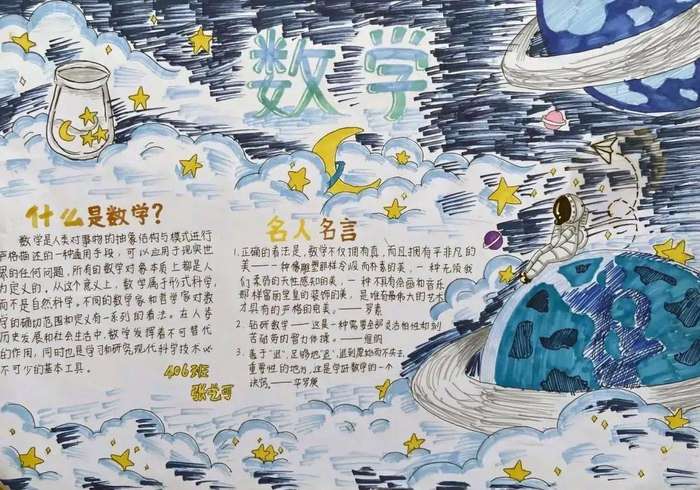 数学
什么是数学?
数学是人类对事物的抽象结构与模式进行
严格描述的一种通用手段,可以应用于现实世
界的任何问题,所有的数学对象本质上都是人
为定义的。从这个意义上,数学属于形式科学,
而不是自然科学。不同的数学家和哲学家对数
学的确切范围和定义有一系列的看法。在人类
历史发展和社会生活中,数学发挥着不可替代
的作用,同时也是学习和研究现代科学技术必
不可少的基本工具。
406班
名人名言
1.正确的看法是,数学不仅拥有真,而且拥有平非凡的
美——一种像雕塑那样冷没有朴素的美,一种无须我
们柔弱的天性感知的美,一种不具有绘画和音乐
那样富丽堂皇的装饰的美,是唯有最伟大的艺术
才具有的严格的完美。——罗素
2.钻研数学
苦动劳的智力体操。
3.善于"退",足够地"退",退到原始而不失去
重要性的地方,这是学好数学的一个
诀窍。——华罗庚